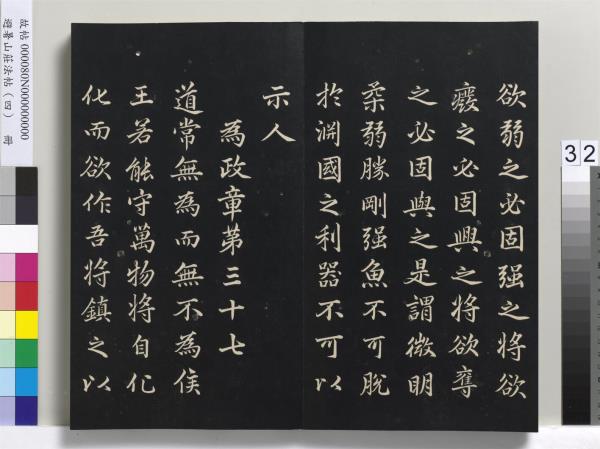 欲弱之必固强之將欲
癈之必固興之將欲奪
之必固與之是謂微明
柔弱勝剛强魚不可脫
於淵國之利器不可以
示人
為政章第三十七
道常無為而無不為侯
王若能守萬物將自化
化而欲作吾將鎮之以
故帖 000080N000000000
避暑山莊法帖(四) 冊
32